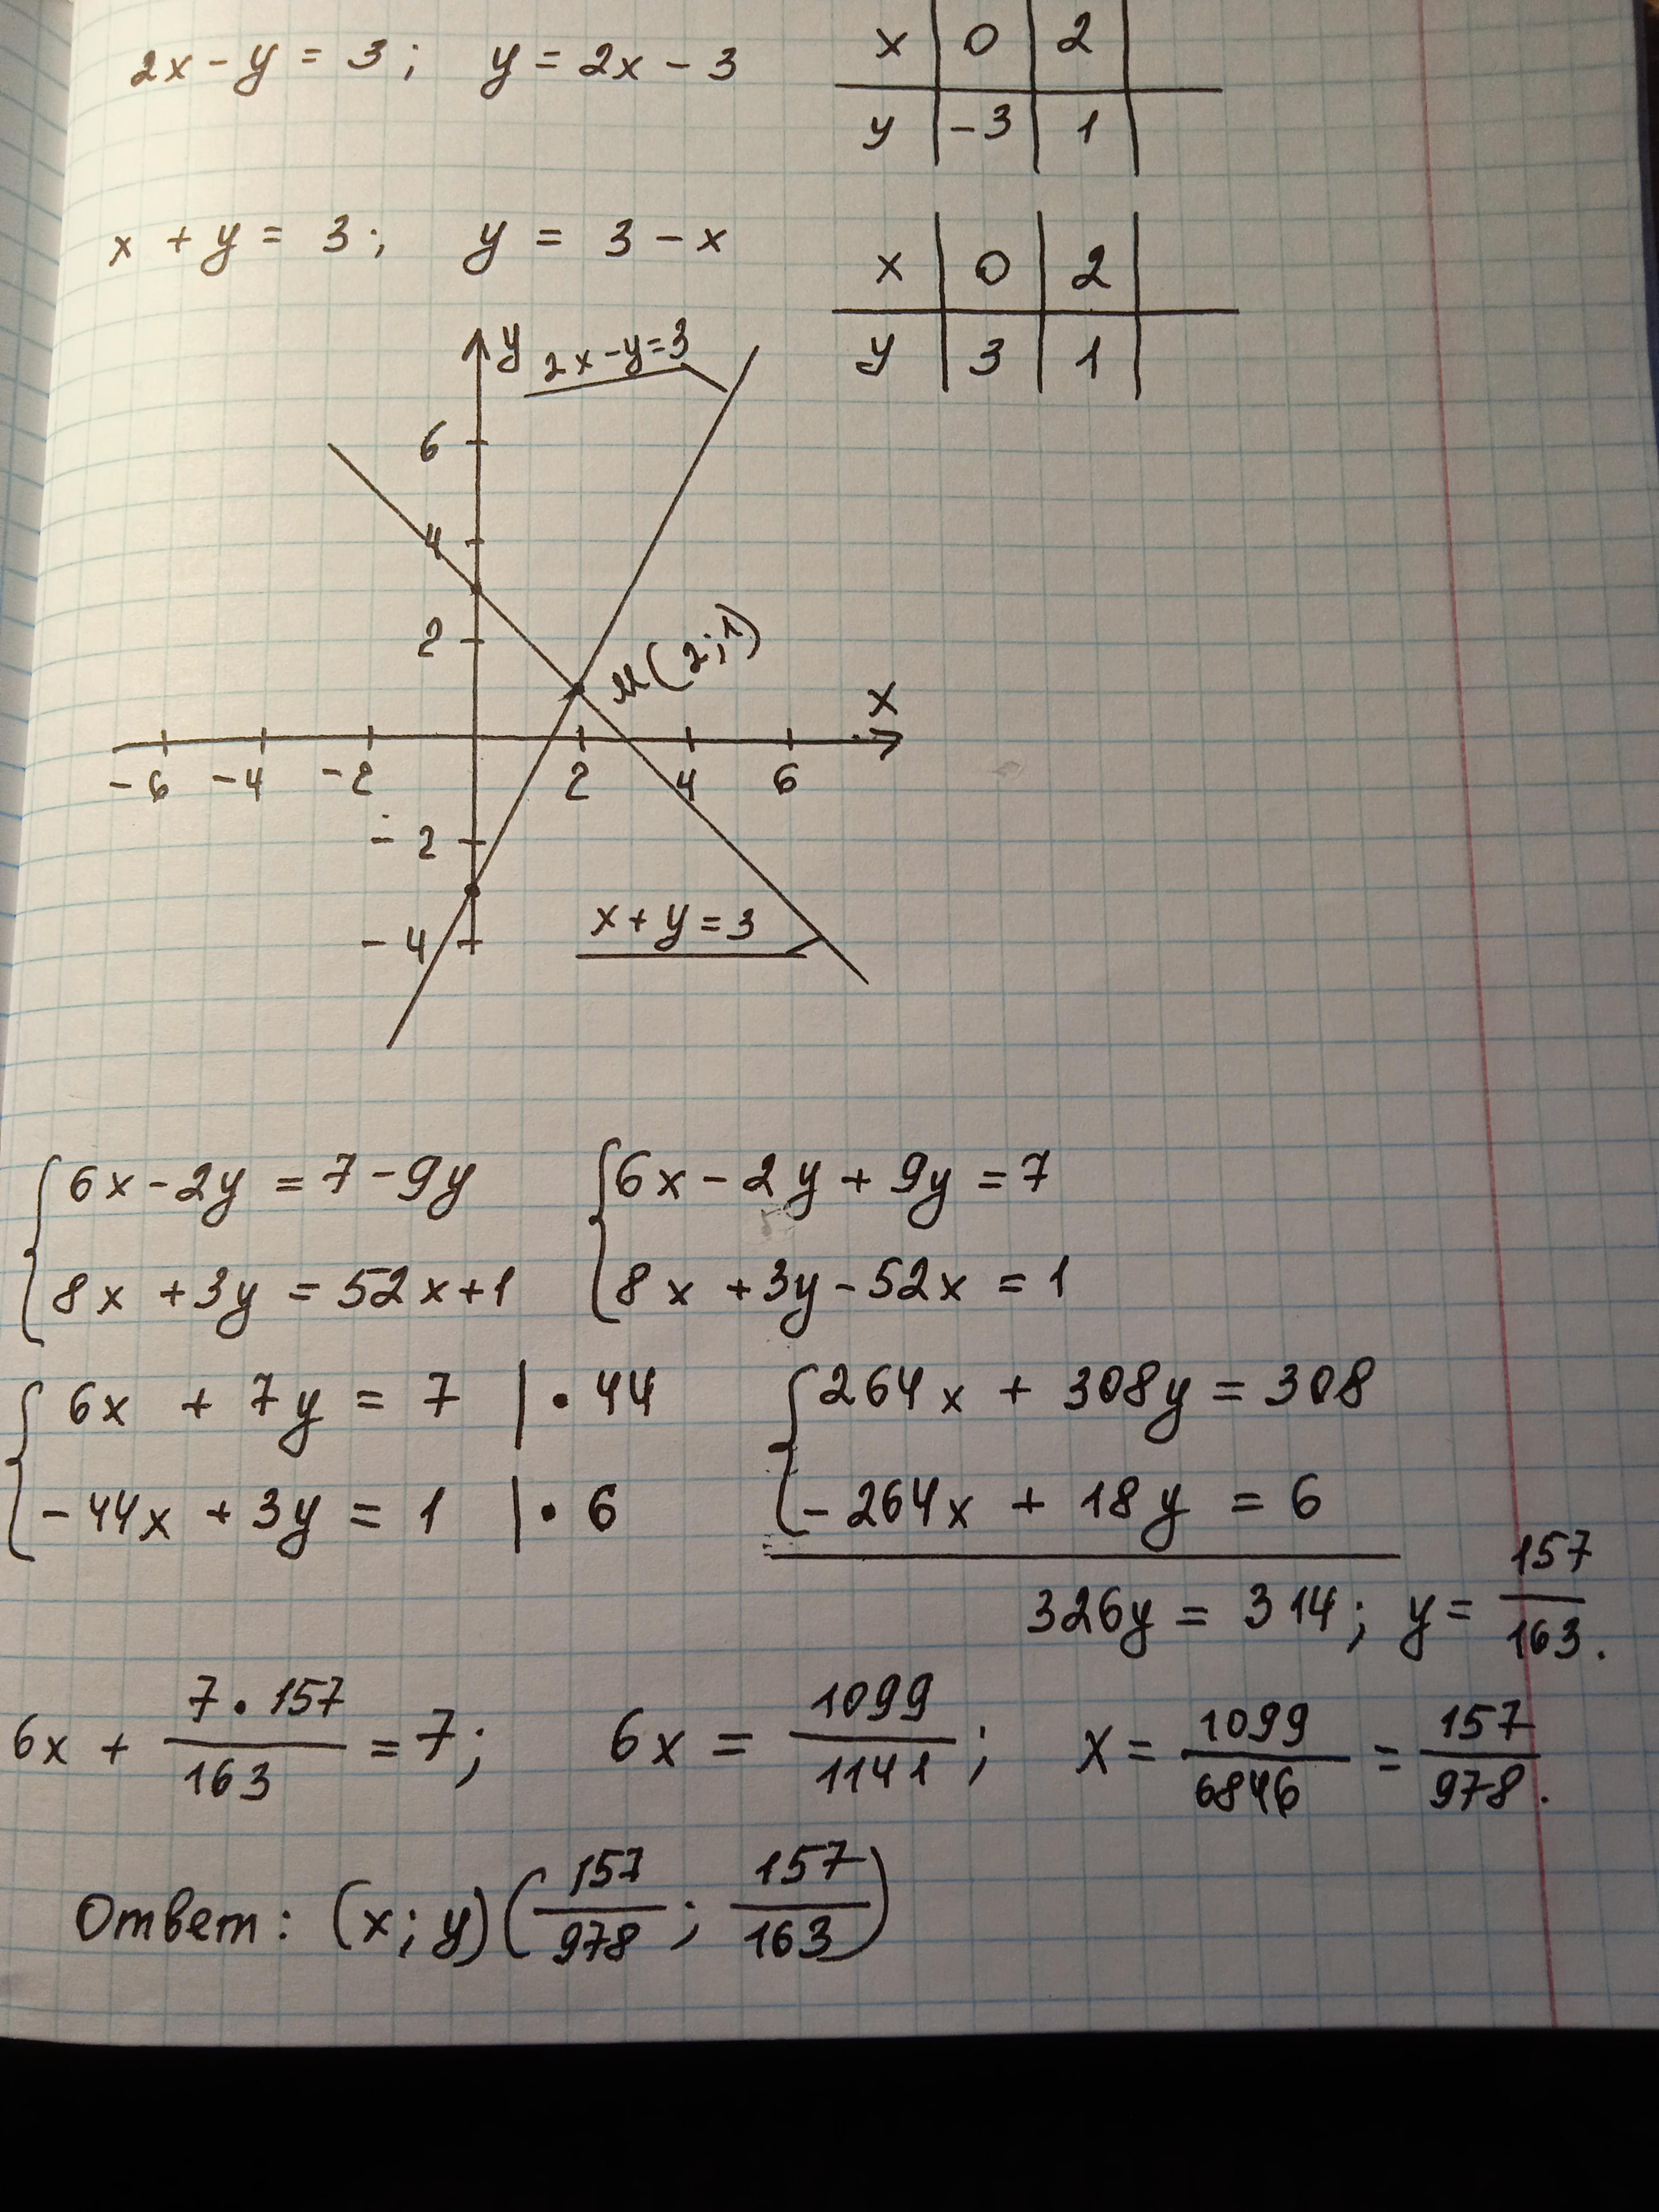 2x - y = 3; y = 2x - 3
x 0 2
y -3 1
x + y = 3; y = 3 - x
x 0 2
y 3 1
y
2x-y=3
6
4
2
М(2;1)
x
-6 -4 -2 2 4 6
-2
-4
x+y=3
6x-2y=7-9y 6x-2y+9y=7
8x+3y=52x+1 8x+3y-52x=1
6x + 7y = 7 | • 44 264x + 308y = 308
-44x + 3y = 1 | • 6 -264x + 18y = 6
326y = 314; y = 157/163.
6x + 7•157/163 = 7; 6x = 1099/1141; x = 1099/6846 = 157/978.
Ответ: (x; y)(157/978; 157/163)